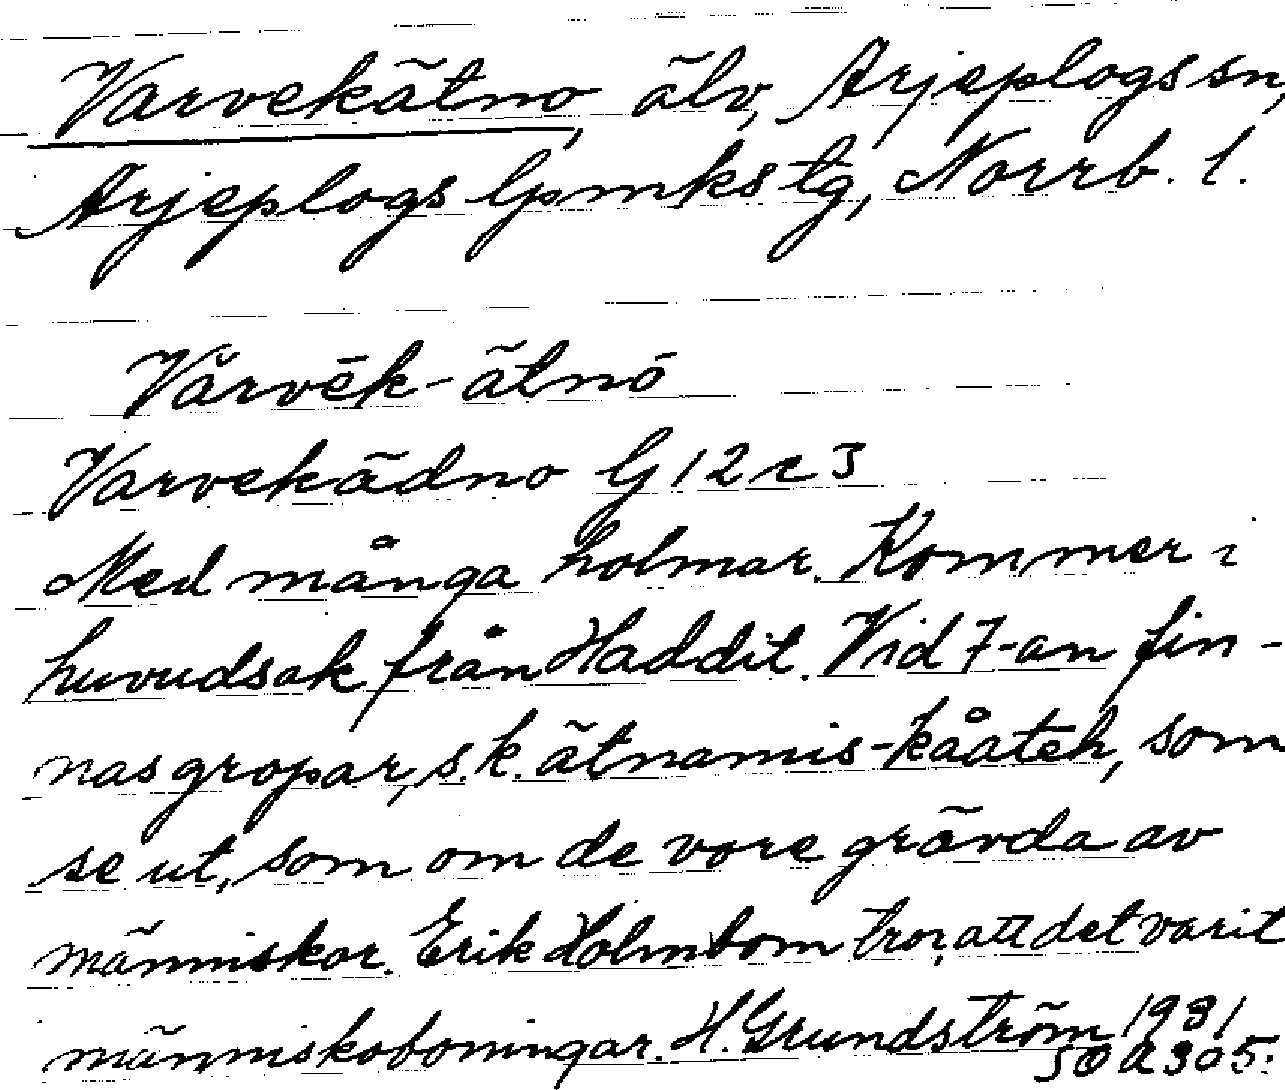 Varvekätno älv, Arjeplogs sn,
Arjeplogs lpmks tg, Norrb. l.
Vărvēk-ätnō
Varvekädno G 12 c 3
Med många holmar. Kommer i
huvudsak från Haddit. Vid 7-an fin-
nas gropar, s.k. ätnamis-kåatēh, som
se ut, som om de vore grävda av
människor. Erik Holmbom tror, att det varit
människoboningar. H. Grundström 1931
SOA 305: